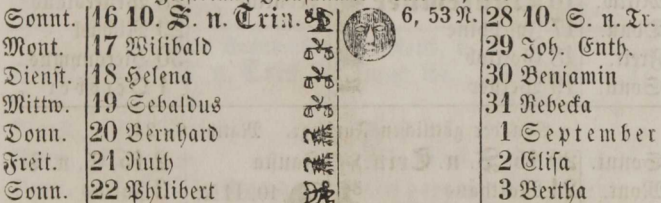 Sonnt. 16 10. S. n. Trin. 6, 53 N. 28 10. S. n. Tr.
Mont. 17 Wilibald 29 Joh. Enth.
Dienſt. 18 Helena 30 Benjamin
Mittw. 19 Sebaldus 31 Rebecka
Donn. 20 Bernhard 1 September
Freit. 21 Ruth 2 Eliſa.
Sonn. 22 Philibert 3 Bertha